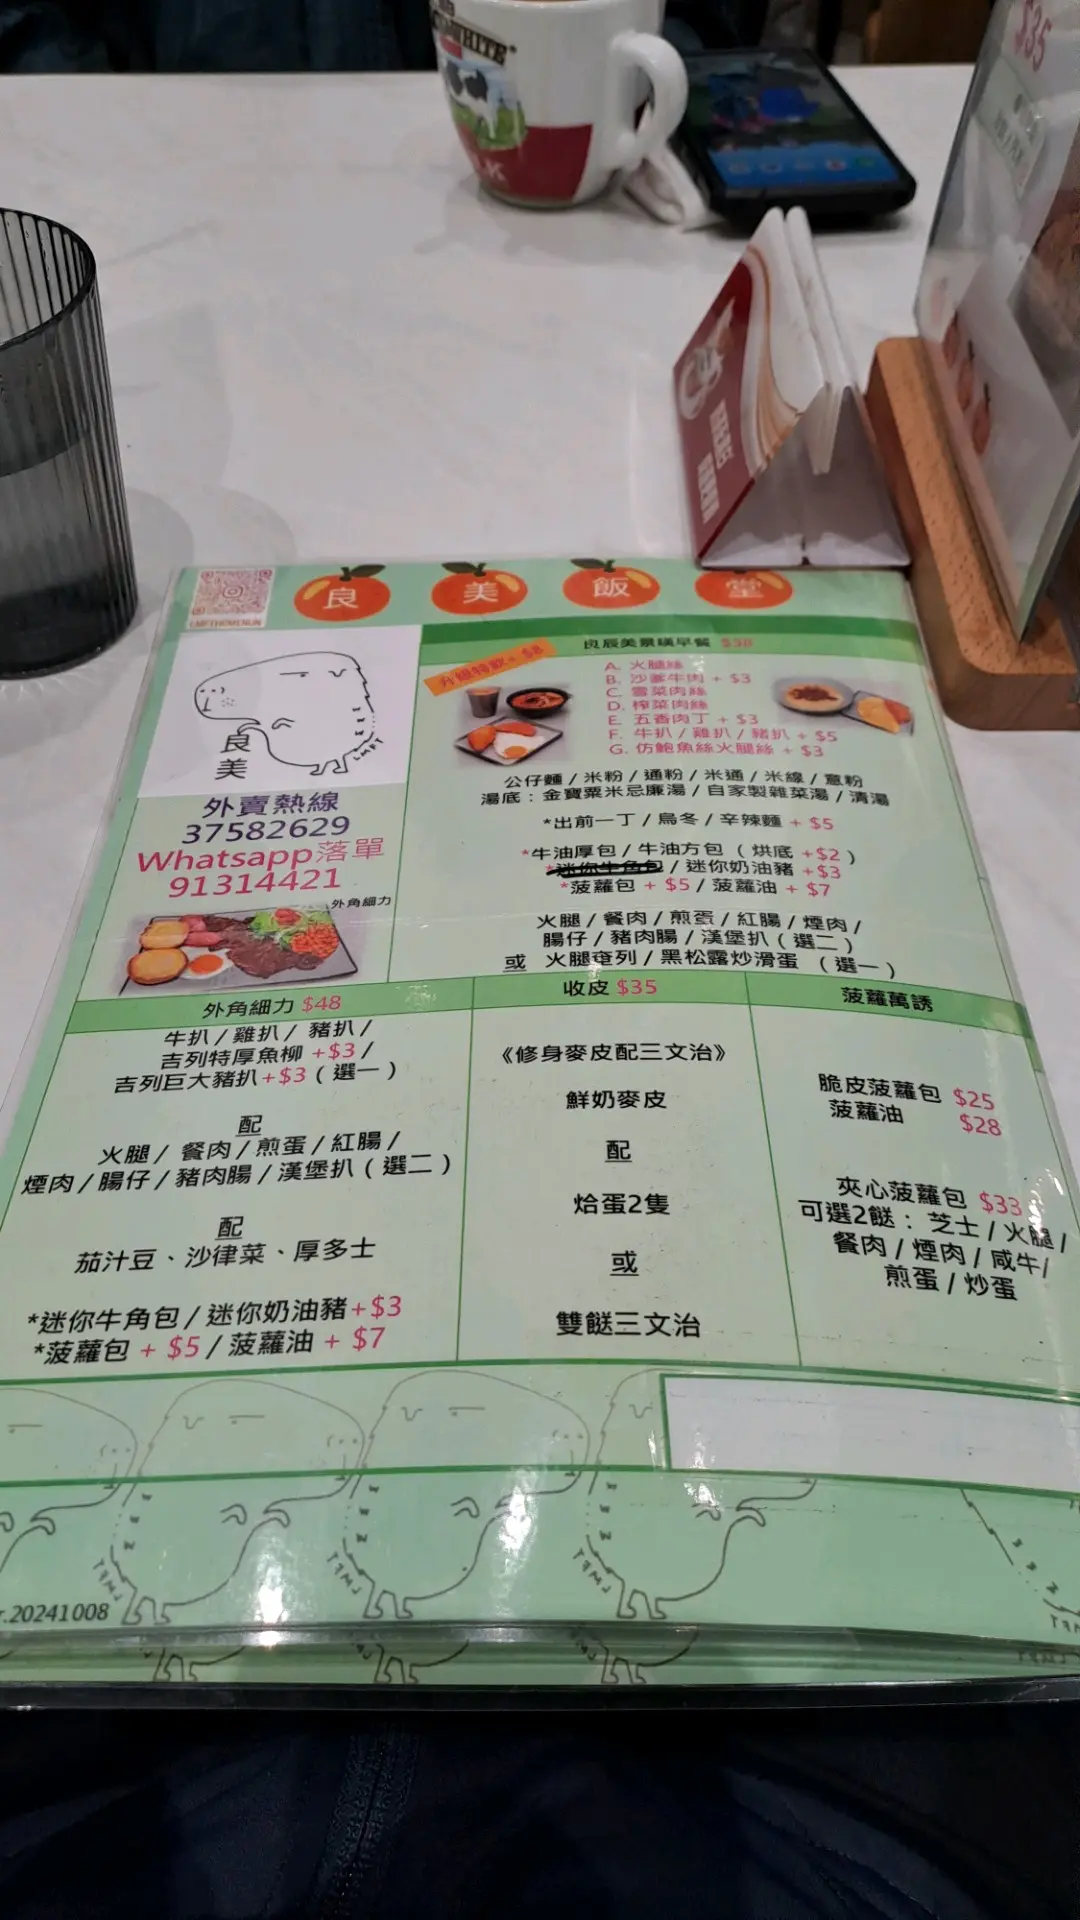 WHITE
$35
良 美 飯 堂
LMFTHOMERUN
良美
LMFT
外賣熱線
37582629
Whatsapp落單
91314421
外角細力
良辰美景嘆早餐 $38
升級特飲+ $8
A. 火腿絲
B. 沙爹牛肉 + $3
C. 雪菜肉絲
D. 榨菜肉絲
E. 五香肉丁 + $3
F. 牛扒 / 雞扒 / 豬扒 + $5
G. 仿鮑魚絲火腿絲 + $3
公仔麵 / 米粉 / 通粉 / 米通 / 米線 / 意粉
湯底：金寶粟米忌廉湯 / 自家製雜菜湯 / 清湯
*出前一丁 / 烏冬 / 辛辣麵 + $5
*牛油厚包 / 牛油方包 （ 烘底 +$2 ）
*迷你牛角包 / 迷你奶油豬 +$3
*菠蘿包 + $5 / 菠蘿油 + $7
火腿 / 餐肉 / 煎蛋 / 紅腸 / 煙肉 /
腸仔 / 豬肉腸 / 漢堡扒 ( 選二 )
或 火腿奄列 / 黑松露炒滑蛋 （ 選一 )
外角細力 $48
牛扒 / 雞扒 / 豬扒 /
吉列特厚魚柳 +$3 /
吉列巨大豬扒+$3 ( 選一 )
配
火腿 / 餐肉 / 煎蛋 / 紅腸 /
煙肉 / 腸仔 / 豬肉腸 / 漢堡扒 ( 選二 )
配
茄汁豆、沙律菜、厚多士
*迷你牛角包 / 迷你奶油豬+$3
*菠蘿包 + $5 / 菠蘿油 + $7
收皮 $35
《修身麥皮配三文治》
鮮奶麥皮
配
烚蛋2隻
或
雙餸三文治
菠蘿萬誘
脆皮菠蘿包 $25
菠蘿油 $28
夾心菠蘿包 $33
可選2餸： 芝士 / 火腿 /
餐肉 / 煙肉 / 咸牛/
煎蛋 / 炒蛋
LMFT
LMFT
LMFT
r.20241008